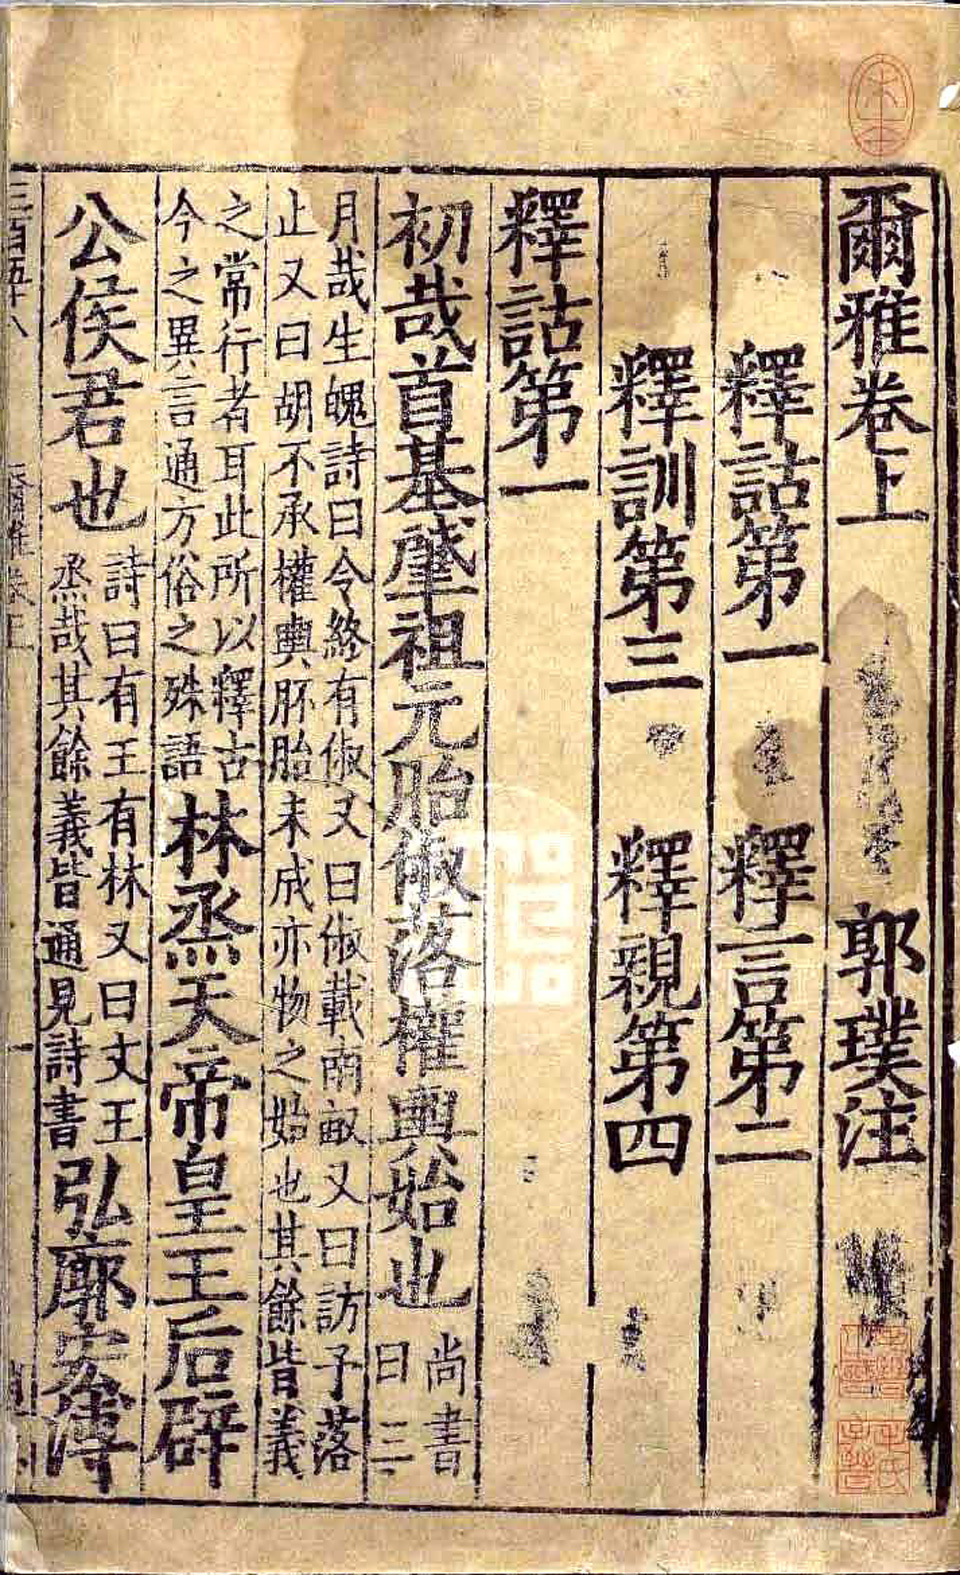 爾雅卷上 郭璞注
釋詁第一 釋言第二
釋訓第三 釋親第四
釋詁第一
初哉首基肇祖元胎俶落權輿始也
尚書
曰三
月哉生魄詩曰令終有俶又曰俶載南畝又曰訪予落
止又曰胡不承權輿胚胎未成亦物之始也其餘皆義
之常行者耳此所以釋古
今之異言通方俗之殊語
林烝天帝皇王后辟
公侯君也
詩曰有王有林又曰文王
烝哉其餘義皆通見詩書
弘廓宏溥
三百五十八
爾雅卷上
一